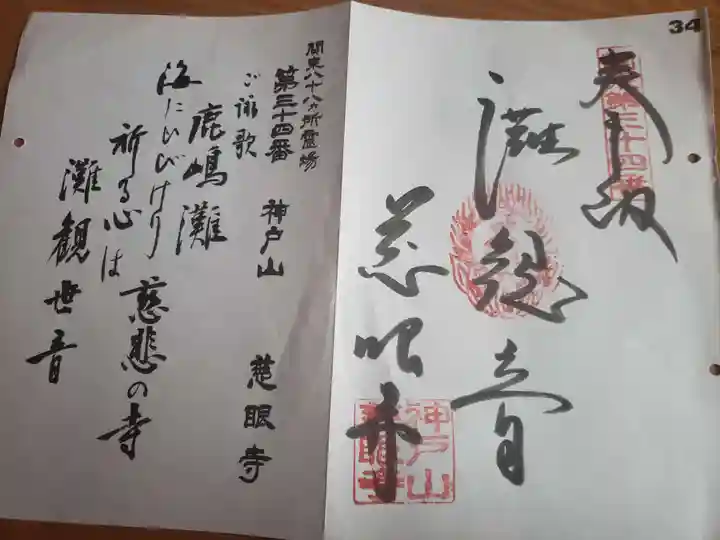 34
奉納
第三十四番
灘観音
慈眼寺
神戸山
慈眼寺
関東八十八ヵ所霊場
第三十四番 神戸山 慈眼寺
ご詠歌
鹿嶋灘
海にひびけり 慈悲の寺
祈る心は
灘観世音